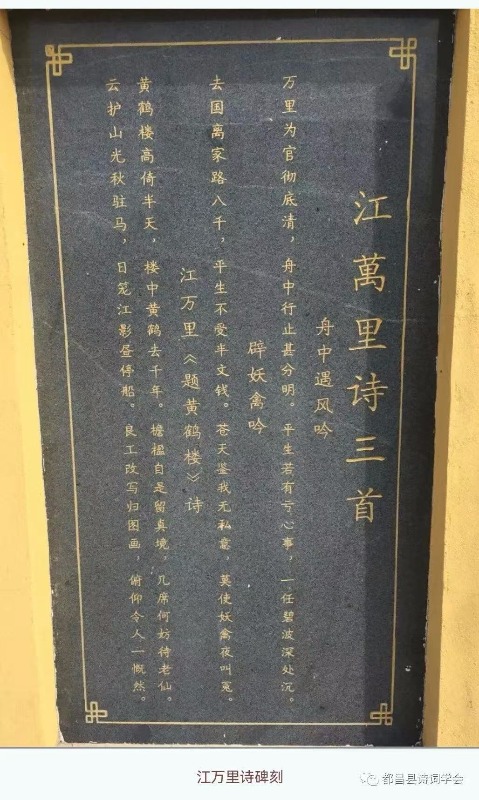 江萬里诗三首
舟中遇风吟
万里为官彻底清，舟中行止甚分明。平生若有亏心事，一任碧波深处沉。
辟妖禽吟
去国离家路八千，平生不受半文钱。苍天鉴我无私意，莫使妖禽夜叫冤。
江万里《题黄鹤楼》诗
黄鹤楼高倚半天，楼中黄鹤去千年。檐楹自是留真境，几席何妨待老仙。
云护山光秋驻马，日笼江影昼停船。良工改写归图画，俯仰令人一慨然。
江万里诗碑刻
都昌县诗词学会